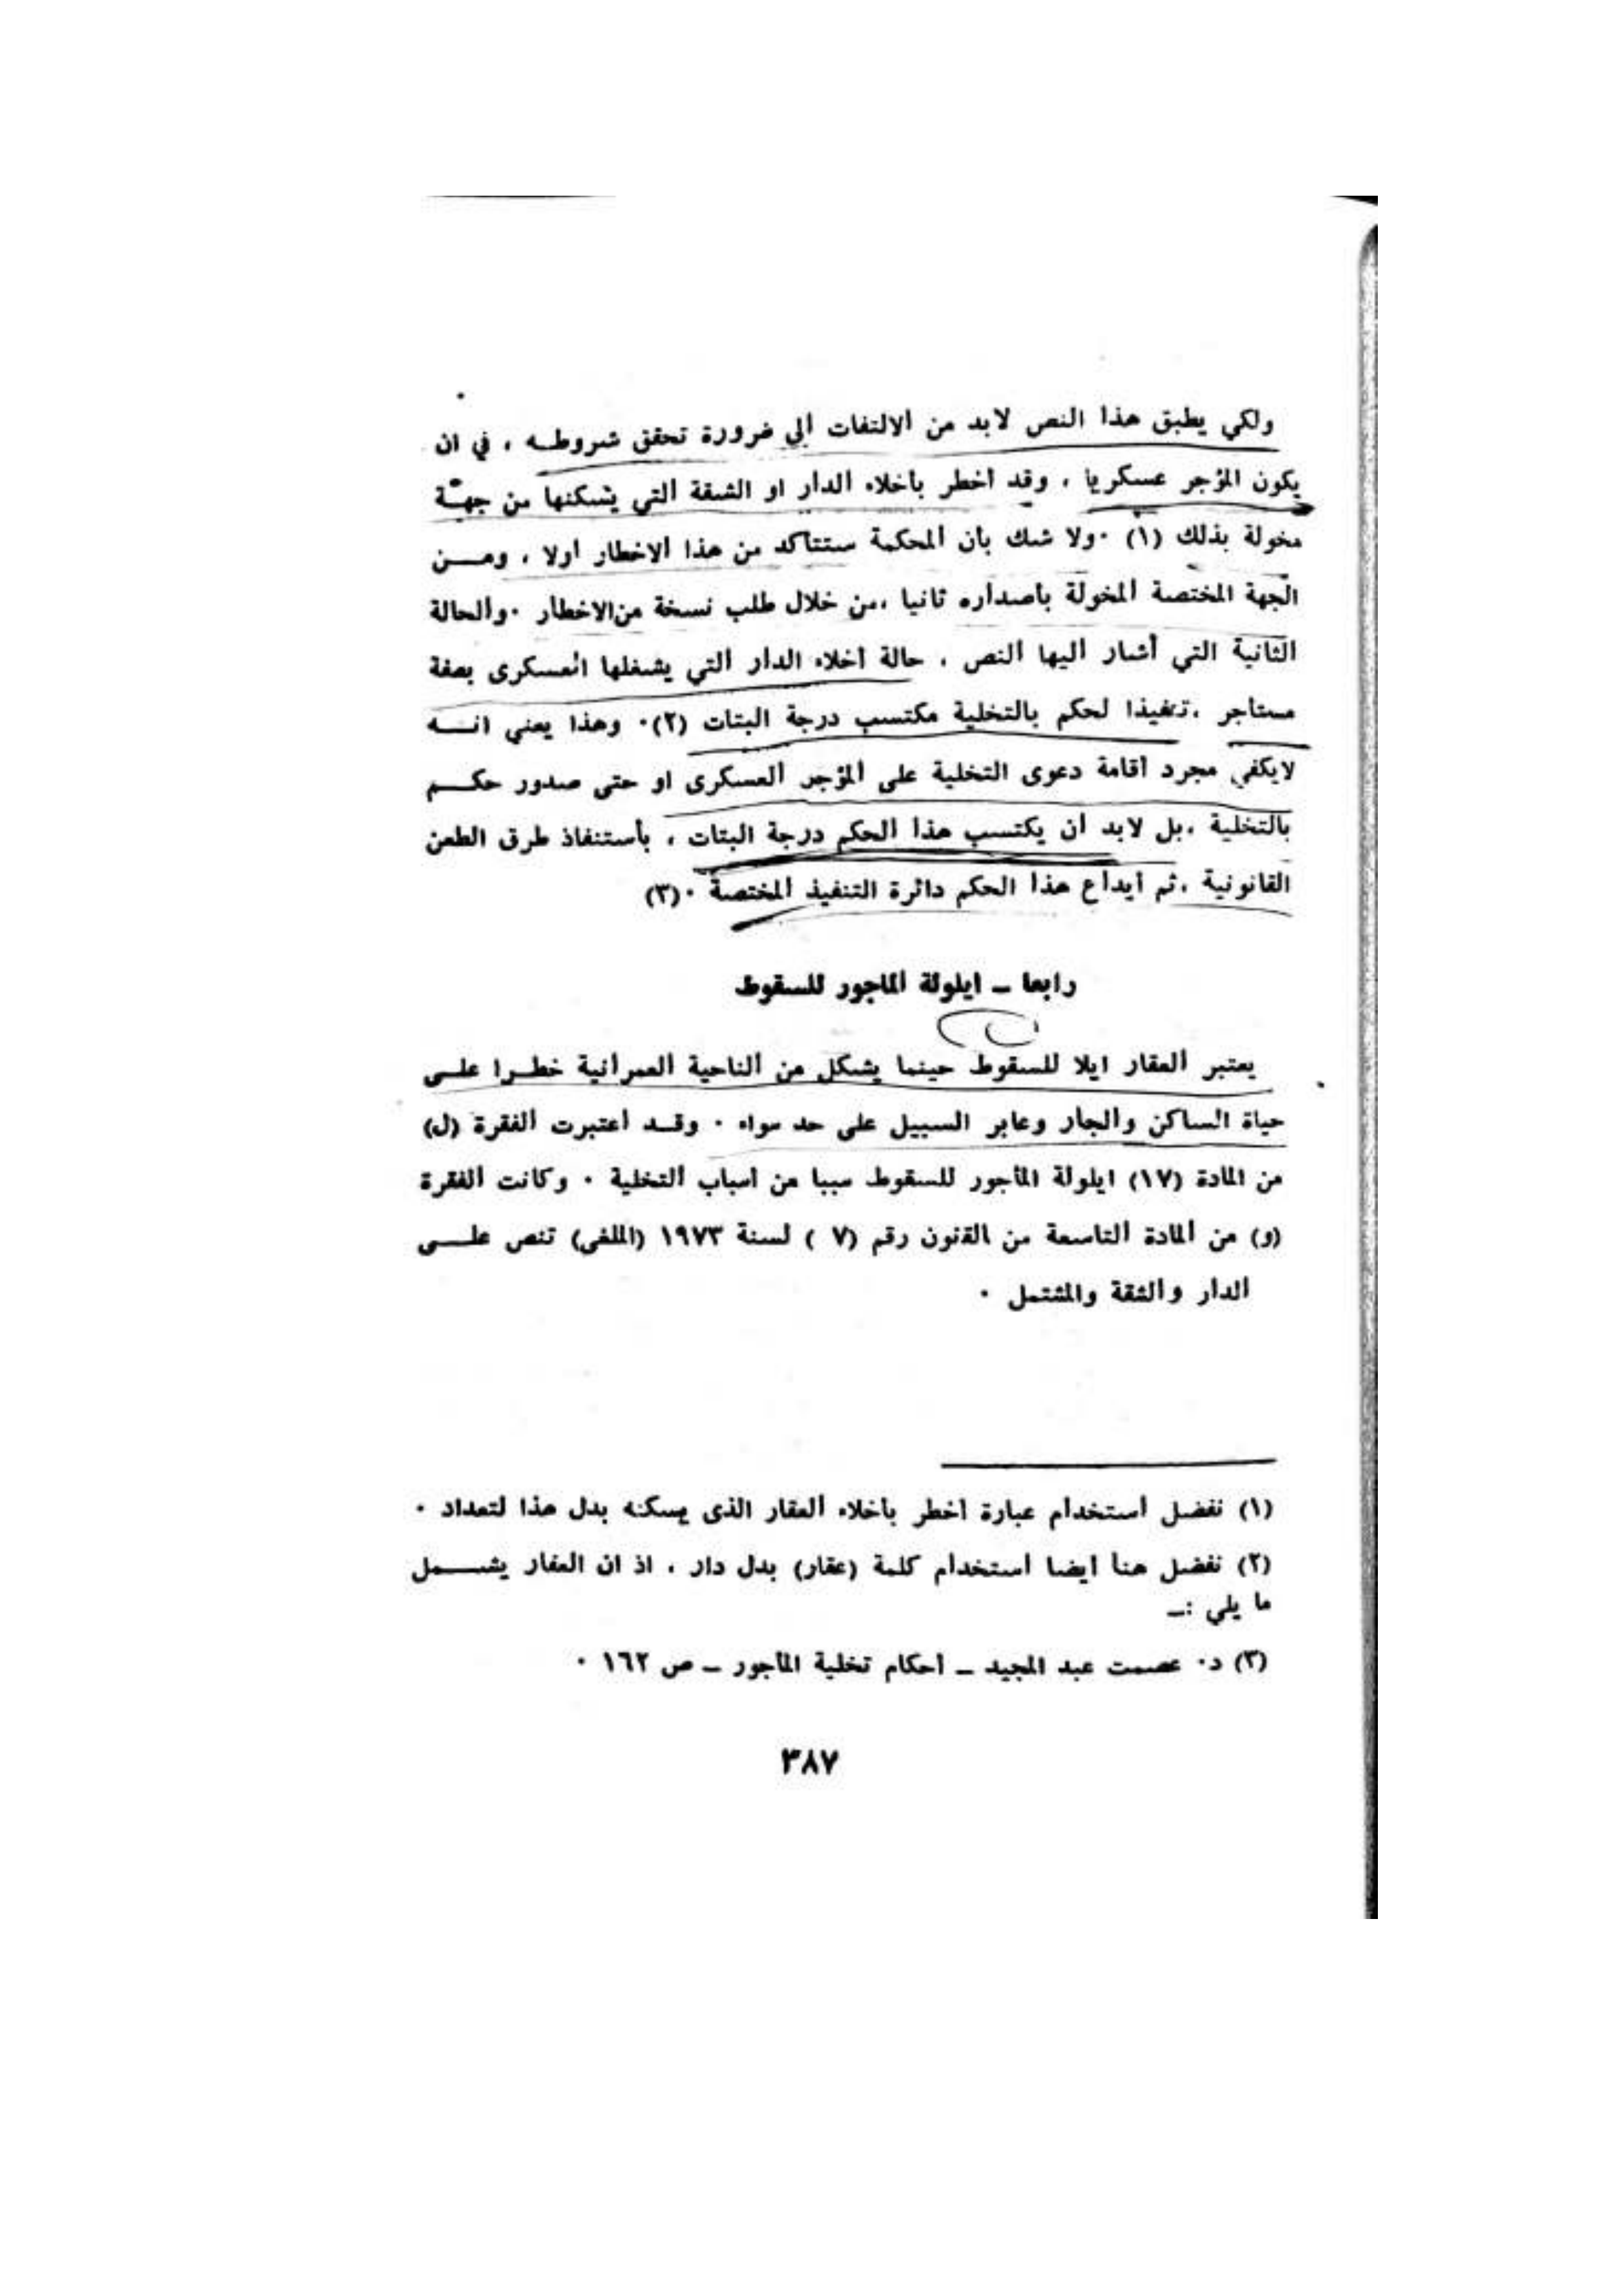 ولكي يطبق هذا النص لابد من الالتفات ألى ضرورة تحقق شروطـه ، في ان
يكون المؤجر عسكريا ، وقد أخطر بأخلاء الدار او الشقة التي يسكنها من جهـة
مخولة بذلك (١) ٠ولا شك بأن المحكمة ستتأكد من هذا الاخطار اولا ، ومـــن
الجهة المختصة المخولة بأصداره ثانيا ،من خلال طلب نسخة من الاخطار ٠وألحالة
الثانية التي أشار أليها النص ، حالة أخلاء الدار التي يشغلها العسكرى بصفة
مستأجر ،تنفيذا لحكم بالتخلية مكتسب درجة البتات (٢)٠ وهذا يعني انــه
لايكفي مجرد أقامة دعوى التخلية على المؤجر العسكرى او حتى صدور حكــم
بالتخلية ،بل لابد أن يكتسب هذا الحكم درجة البتات ، بأستنفاذ طرق الطعن
القانونية ،ثم أيداع هذا الحكم دائرة التنفيذ المختصة ٠(٣)
رابعا ــ ايلولة المأجور للسقوط
يعتبر ألعقار ايلا للسقوط حينما يشكل من الناحية العمرانية خطـرا علـى
حياة الساكن والجار وعابر السبيل على حد سواء ٠ وقـد أعتبرت الفقرة (ل)
من المادة (١٧) ايلولة المأجور للسقوط سببا من اسباب التخلية ٠ وكانت الفقرة
(و) من المادة التاسعة من القنون رقم (٧ ) لسنة ١٩٧٣ (الملغى) تنص علـــى
الدار والشقة والمشتمل ٠
(١) نفضل أستخدام عبارة أخطر بأخلاء العقار الذى يسكنه بدل هذا لتعداد ٠
(٢) نفضل هنا ايضا أستخدام كلمة (عقار) بدل دار ، اذ ان العقار يشــــمل
ما يلي :ــ
(٣) د٠ عصمت عبد المجيد ــ أحكام تخلية المأجور ــ ص ١٦٢ ٠
٣٨٧